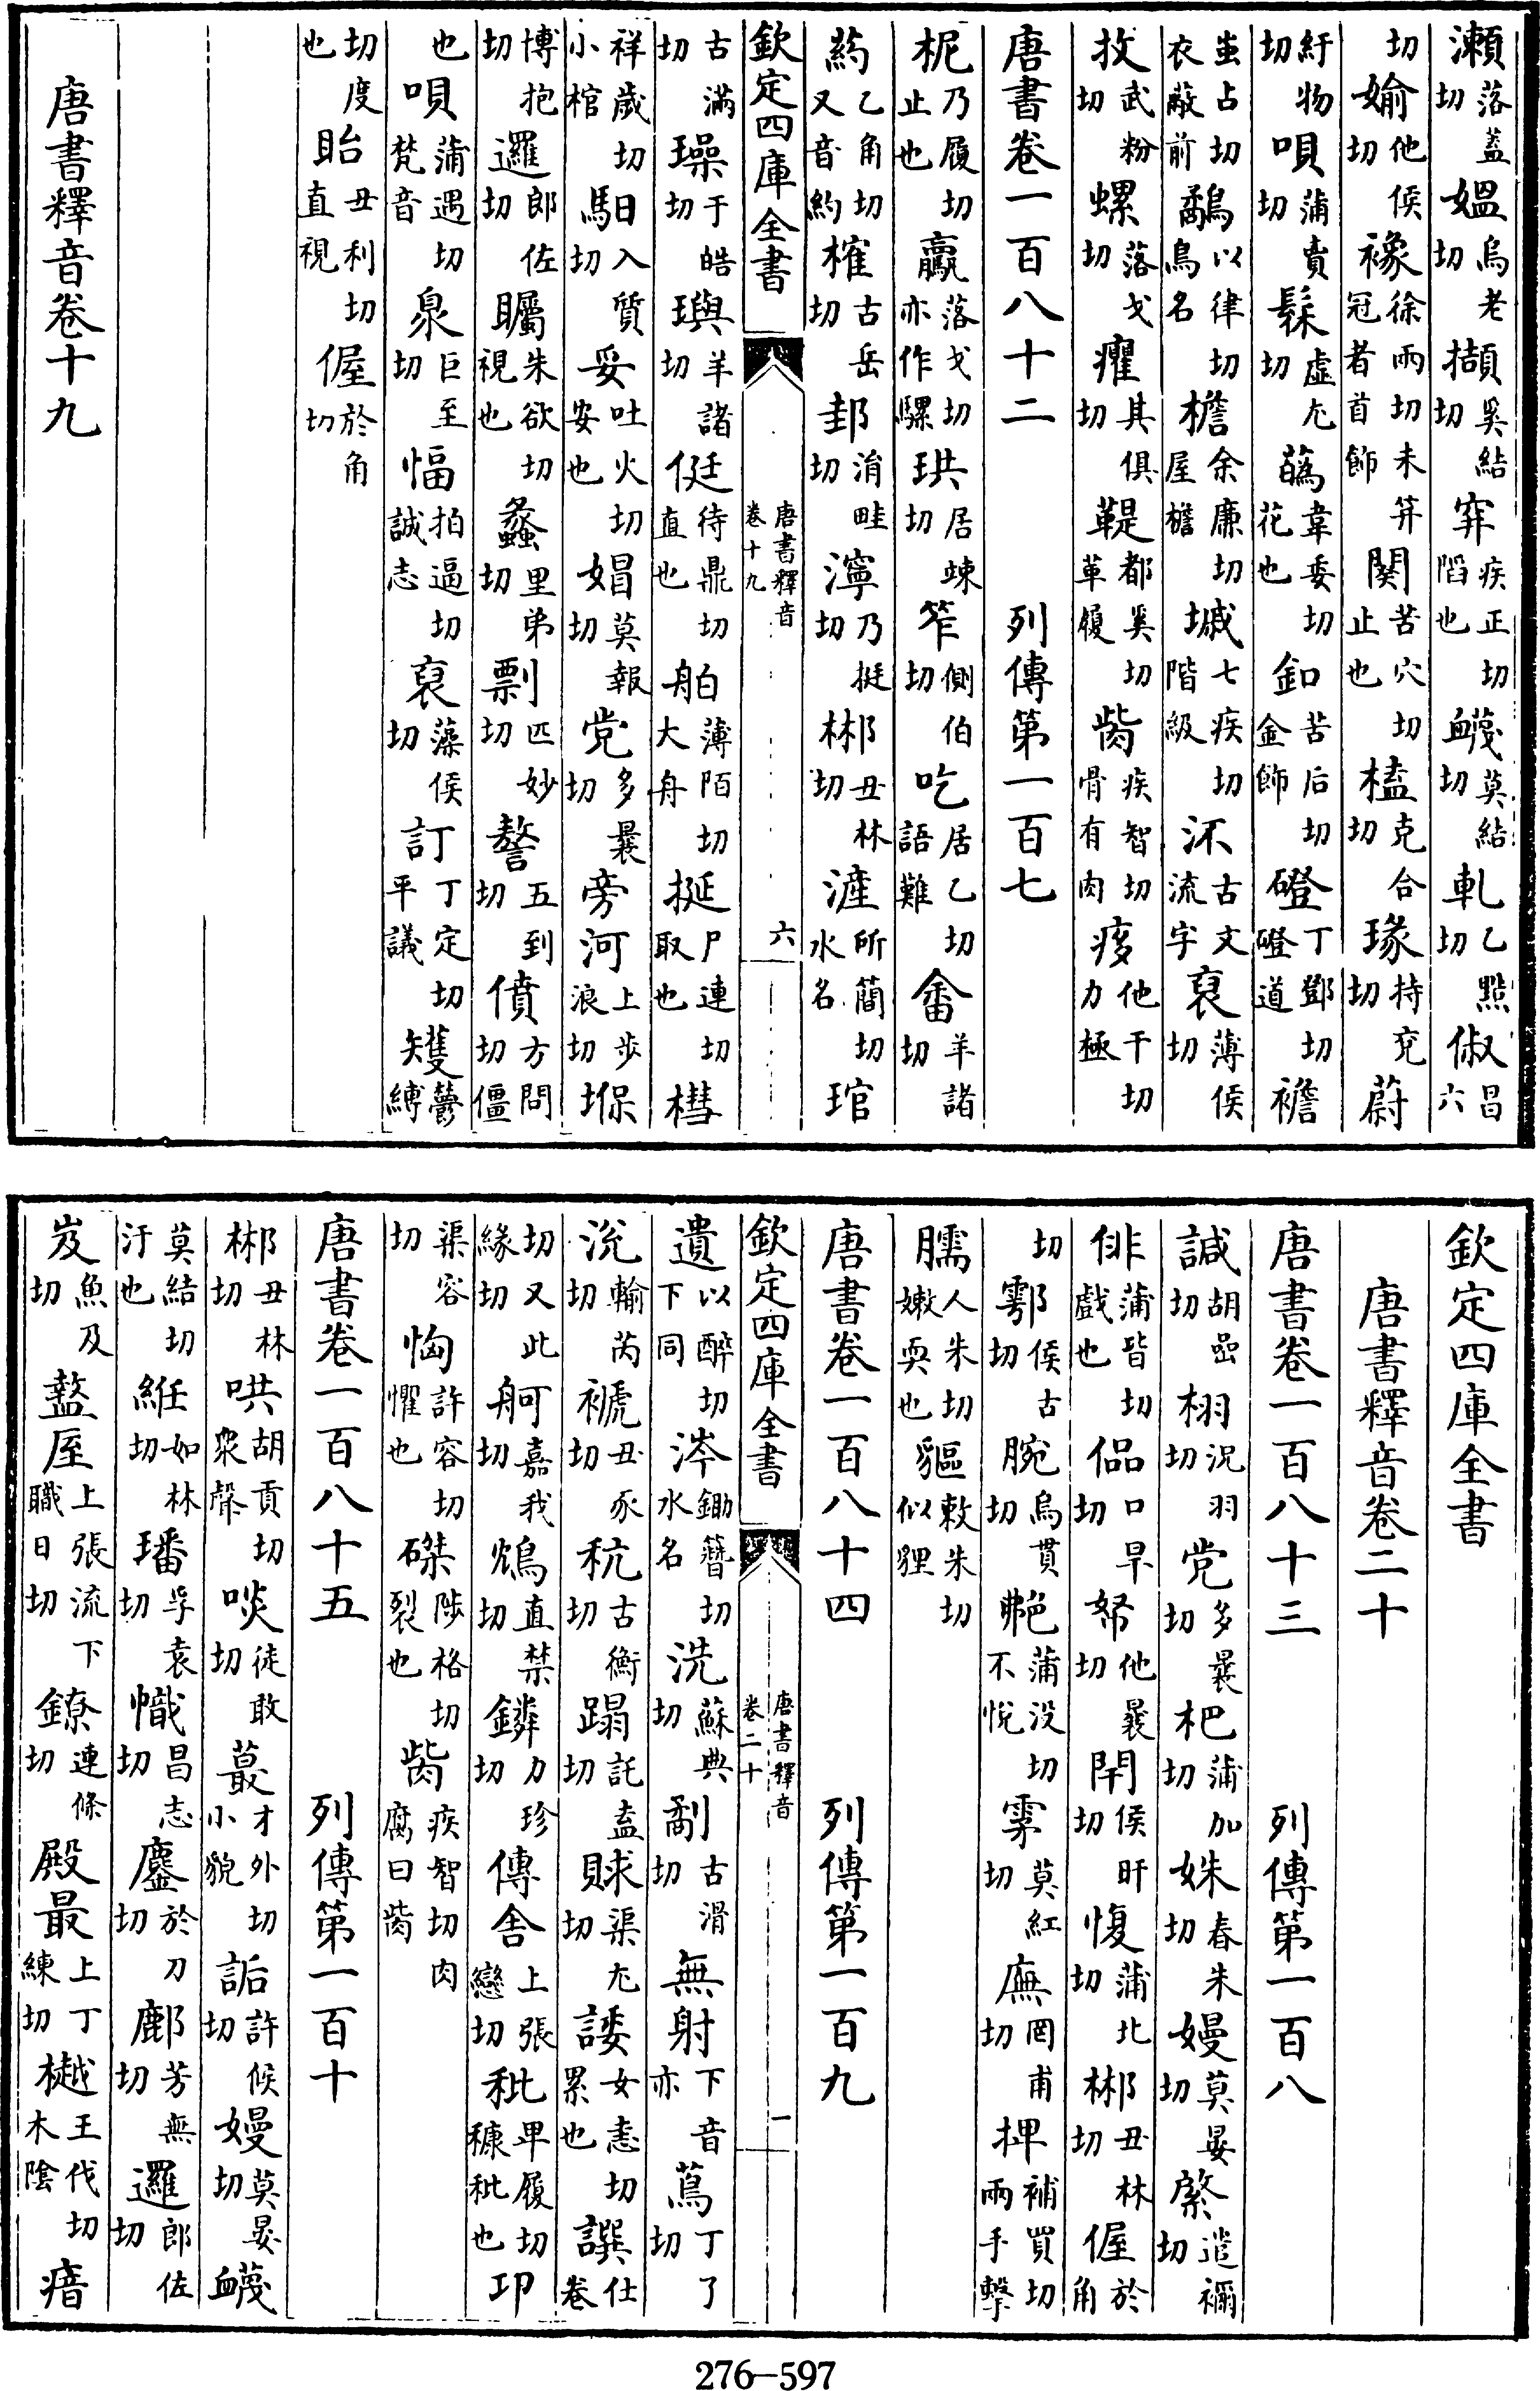 瀬落蓋切媼烏老切擷奚結切穽疾正切陷也衊莫結切軋乙㸃切俶昌六
切媮他侯切襐徐兩切未笄冠者首飾闋苦穴切止也榼克合切瑑持兖切蔚
紆物切唄蒲賣切髹虚尤切蔿韋委切花也釦苦后切金飾磴丁鄧切磴道襜
蚩占切衣蔽前鷸以律切鳥名檐余亷切屋檐墄七疾切階級㳅古文流字裒薄侯切
抆武粉切螺落戈切癯其俱切鞮都奚切革履胔疾智切骨有肉痑他干切力極
唐書卷一百八十二　列傳第一百七
柅乃履切止也驘落戈切亦作騾珙居竦切笮側伯切吃居乙切語難畬羊諸切
葯乙角切又音約榷古岳切邽涓畦切濘乃挺切郴丑林切滻所簡切水名琯
欽定四庫全書　唐書釋音卷十九　六
古滿切璪于皓切璵羊諸切侹待鼎切直也舶薄陌切大舟挻尸連切取也槥
祥歲切小棺馹日入質切妥吐火切安也媢莫報切党多曩切旁河上步浪切堢
博抱切邏郎佐切矚朱欲切視也蠡里弟切剽匹妙切謷五到切僨方問切僵
也唄蒲遇切梵音臮巨至切愊拍逼切誠志裒薄侯切訂丁定切平議矱鬱縛
切度也眙丑利切直視偓於角切
唐書釋音卷十九
欽定四庫全書
唐書釋音卷二十
唐書卷一百八十三　列傳第一百八
諴胡嵒切栩況羽切党多曩切杷蒲加切姝春朱切嫚莫晏切綮遣禰切
俳蒲皆切戲也偘口旱切帑他曩切閈侯旰切愎蒲北切郴丑林切偓於角
切鄠侯古切腕烏貫切艴蒲没切不悅雺莫紅切廡罔甫切捭補買切兩手擊
臑人朱切嫩耎也貙敕朱切似貍
唐書卷一百八十四　列傳第一百九
欽定四庫全書　唐書釋音卷二十　一
遺以醉切下同涔鋤簪切水名洗蘇典切剮古滑切無射下音亦蔦丁了切
涗輸芮切褫丑豕切秔古衡切蹋託盍切賕渠尤切諉女恚切累也譔仕卷
切又此緣切舸嘉我切鴆直禁切鏻力珍切傳舍上張戀切秕卑履切穅秕也卭
渠容切恟許容切懼也磔陟格切裂也胔疾智切肉腐曰胔
唐書卷一百八十五　列傳第一百十
郴丑林切哄胡貢切衆聲啖徒敢切蕞才外切小貌詬許候切嫚莫晏切衊
莫結切汙也絍如林切璠孚袁切幟昌志切鏖於刀切鄜芳無切邏郎佐切
岌魚及切盩厔上張流下職日切鐐連條切殿最上丁練切樾王伐切木隂瘖
276-597